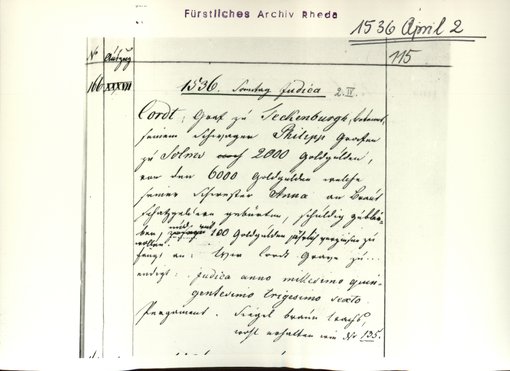 Fürstliches Archiv Rheda
1536 April 2
115
No Auszug
166 XXXVII
1536. Sonntag Judica 2. IV.
Cordt, Graf zu Teckenburgh, bekennt,
seinem Schwager Philipp Grafen
zu Solms noch 2000 Goldgulden,
von den 6000 Goldgulden welche
seiner Schwester Anna an Braut
schatzgeldern gebürten, schuldig geblie
ben, und mit 100 Goldgulden jährlich verzinsen zu
wollen.
fangt an: Wir Cordt Grave zu...
endigt: Judica anno millesimo quin
gentesimo trigesimo sexto.
Pergament. Siegel braun Wachs,
wohl erhalten wie No 135.